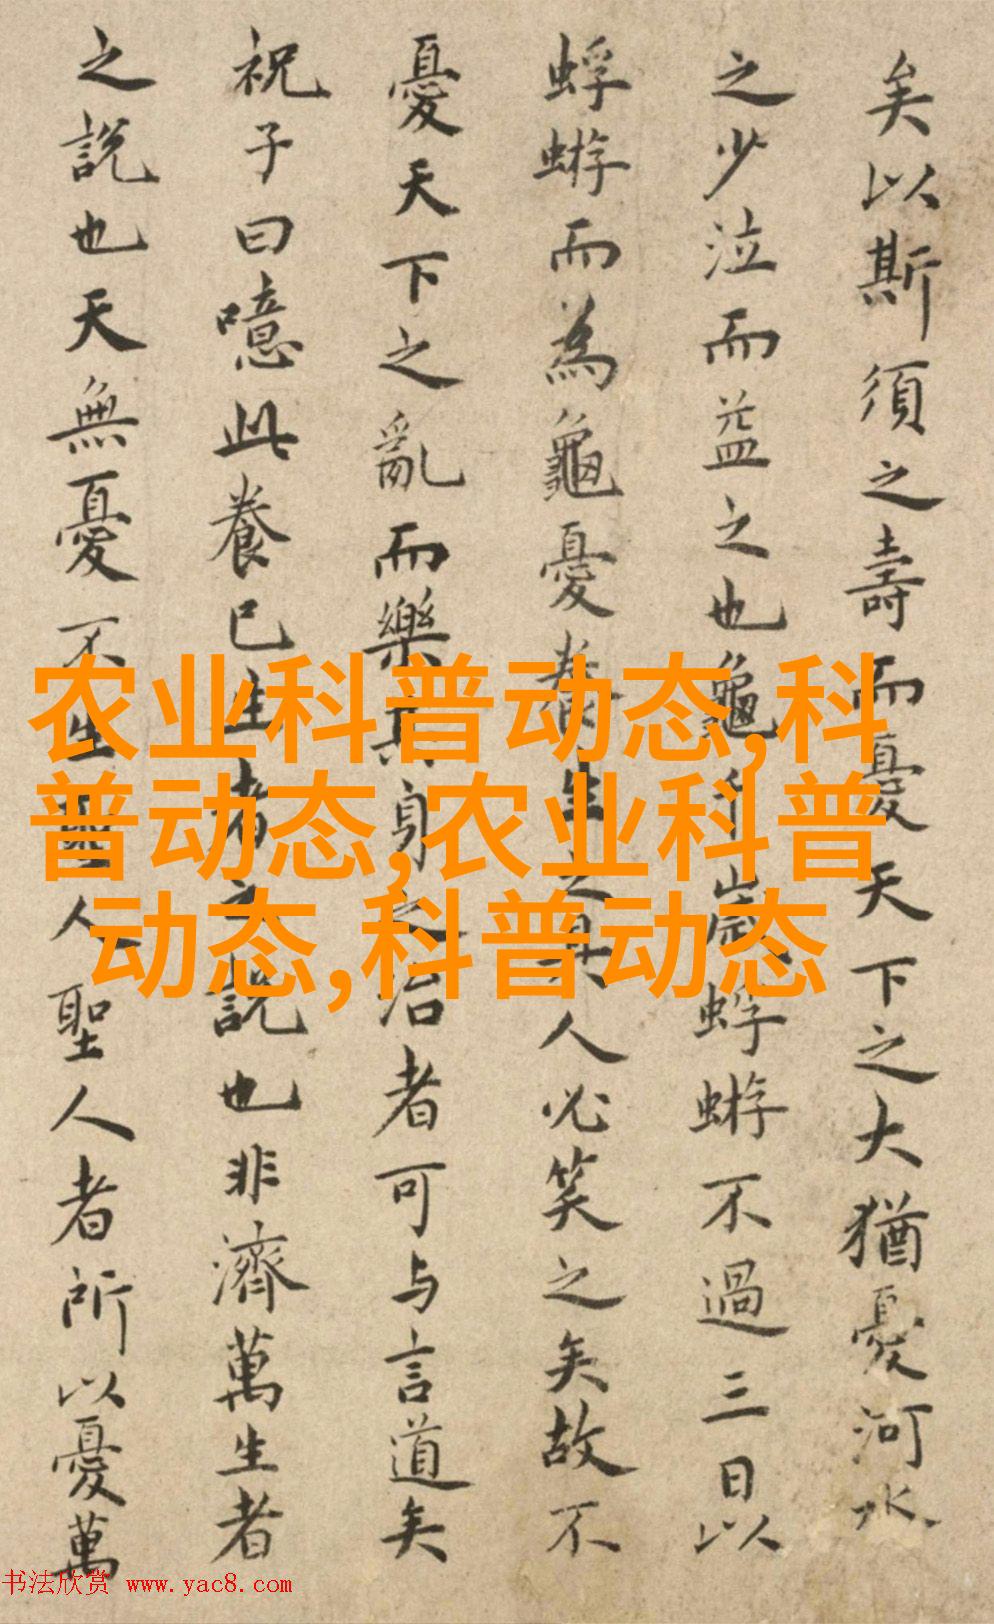 矣以斯須之壽而憂天下之大猶憂河水
之少泣而益之也龜千歲蜉蝣不過三日以
蜉蝣而為龜憂養生之具人必笑之矣故不
憂天下之亂而樂其身之治者可与言道矣
祝子曰噫此養已生者之説也非濟萬生者
之説也天無憂不生聖人聖人者所以憂萬
农业科普动态,科
普动态,农业科普
动态,科普动态
书法欣赏 www.yac8.com